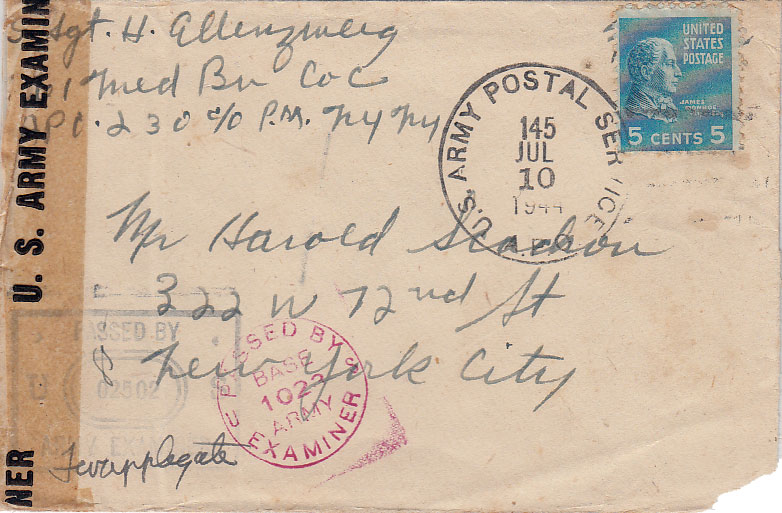 Sgt. H. Ellenzweig
Med Bn Co C
230 c/o P.M. Ny Ny
UNITED
STATES
POSTAGE
JAMES
MONROE
5 CENTS 5
U.S. ARMY POSTAL SERVICE
145
JUL
10
1944
Mr Harold
322 W 72nd St
New York City
U. S. ARMY EXAMIN
NER
PASSED BY
U S
02502
PASSED BY
BASE
1022
ARMY
EXAMINER
U S